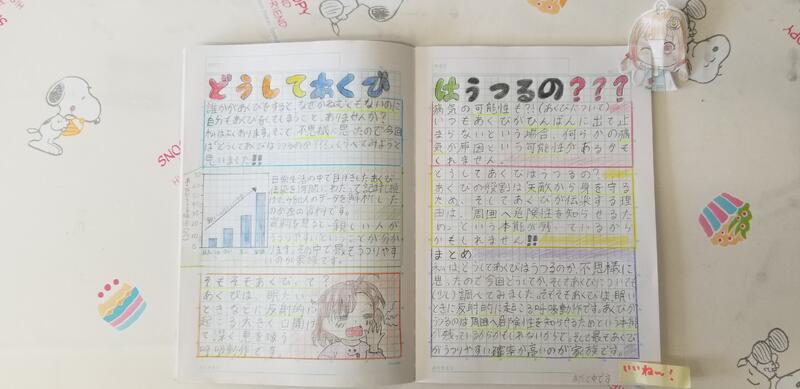 どうしてあくび
はうつるの???
誰かがあくびをすると、なぜかねむくもないのに
自分もあくびをしてしまうこと、ありませんか?
私はよくあります。そこで不思議に思ったので今回
は「どうしてあくびはうつるのか?」を調べてみようと
思いました!!
日常生活の中で目げきしたあくび
の左の資料です。
資料を見ると、親しい人が
うつりやすいということが分か
ります。その中で最もうつりやす
いのが家族です。
そもそもあくびって?
あくびは、眠たい
ときなどに反射的に
起こる大きく口開け
て深く息を吸う
呼吸動作です。
病気の可能性も?!(あくびについて)
いつもあくびがひんぱんに出て止
まらないという場合、何らかの病
気が原因という可能性があるかも
しれません。
どうしてあくびはうつるの?
あくびの役割は天敵から身を守る
ため、そしてあくびが伝染する理
由は、周囲へ危険性を知らせるた
め、という本能が残っているから
かもしれません!!
まとめ
私は、どうしてあくびはうつるのか、不思議に
思ったので今回どうしてか、そしてあくびについても
調べてみました。そもそもあくびは、眠い
ときに反射的に起こる呼吸動作です。あくびが
うつるのは周囲へ危険性を知らせるためという本能
が残っているからかもしれないからです。そして最もあくび
がうつりやすい確率が高いのが家族です。
いいね〜!
SNOOPY
FRIEND